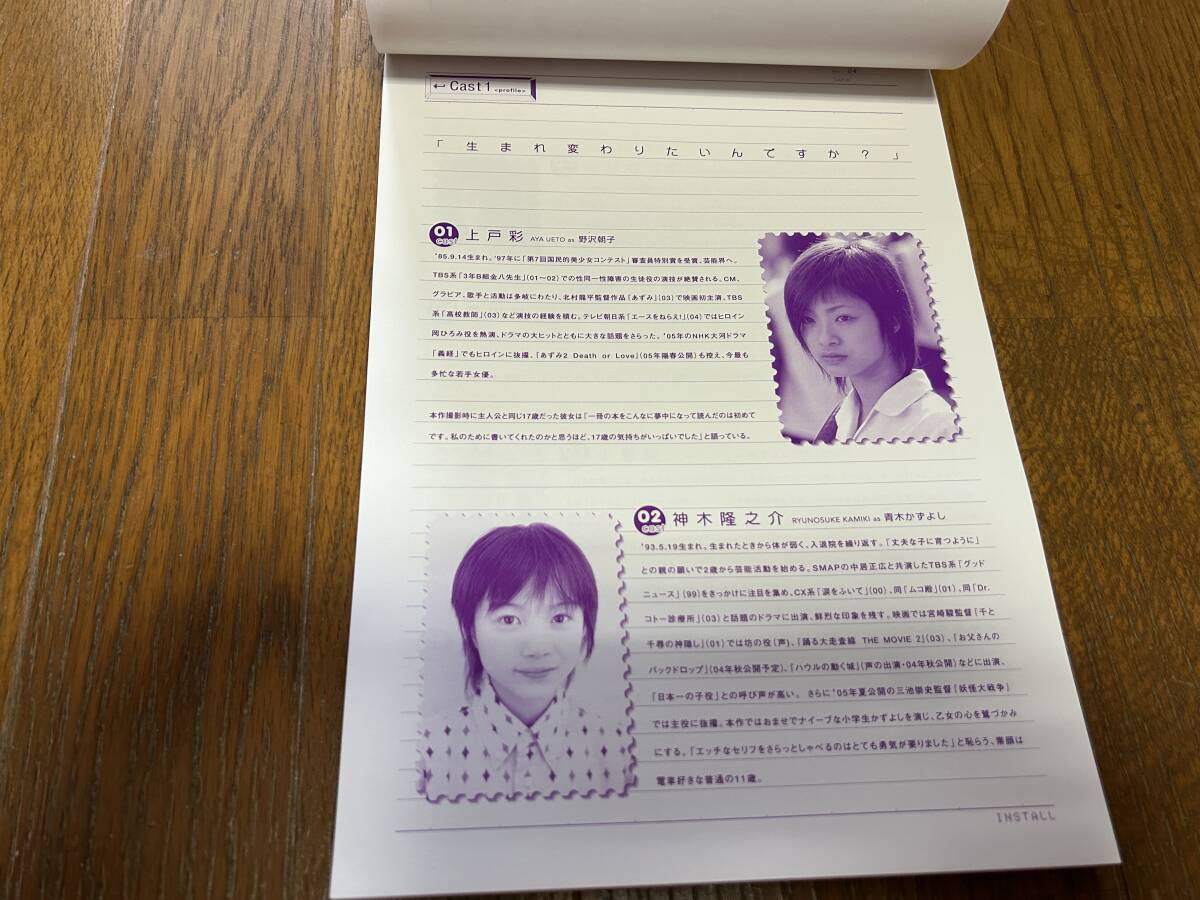 04
← Cast1 <profile>
「生まれ変わりたいんですか？」
01 cast 上戸彩 AYA UETO as 野沢朝子
'85.9.14生まれ。'97年に「第7回国民的美少女コンテスト」審査員特別賞を受賞、芸能界へ。
TBS系「3年B組金八先生」(01～02)での性同一性障害の生徒役の演技が絶賛される。CM、
グラビア、歌手と活動は多岐にわたり、北村龍平監督作品「あずみ」(03)で映画初主演、TBS
系「高校教師」(03)など演技の経験を積む。テレビ朝日系「エースをねらえ!」(04)ではヒロイン
岡ひろみ役を熱演、ドラマの大ヒットとともに大きな話題をさらった。'05年のNHK大河ドラマ
「義経」でもヒロインに抜擢。「あずみ2 Death or Love」(05年陽春公開)も控え、今最も
多忙な若手女優。
本作撮影時に主人公と同じ17歳だった彼女は「一冊の本をこんなに夢中になって読んだのは初めて
です。私のために書いてくれたのかと思うほど、17歳の気持ちがいっぱいでした」と語っている。
02 cast 神木隆之介 RYUNOSUKE KAMIKI as 青木かずよし
'93.5.19生まれ。生まれたときから体が弱く、入退院を繰り返す。「丈夫な子に育つように」
との親の願いで2歳から芸能活動を始める。SMAPの中居正広と共演したTBS系「グッド
ニュース」(99)をきっかけに注目を集め、CX系「涙をふいて」(00)、同「ムコ殿」(01)、同「Dr.
コトー診療所」(03)と話題のドラマに出演、鮮烈な印象を残す。映画では宮崎駿監督「千と
千尋の神隠し」(01)では坊の役(声)、「踊る大走査線 THE MOVIE 2」(03)、「お父さんの
バックドロップ」(04年秋公開予定)、「ハウルの動く城」(声の出演・04年秋公開)などに出演、
「日本一の子役」との呼び声が高い。さらに'05年夏公開の三池崇史監督「妖怪大戦争」
では主役に抜擢。本作ではおませでナイーブな小学生かずよしを演じ、乙女の心を鷲づかみ
にする。「エッチなセリフをさらっとしゃべるのはとても勇気が要りました」と恥らう、素顔は
電車好きな普通の11歳。
INSTALL